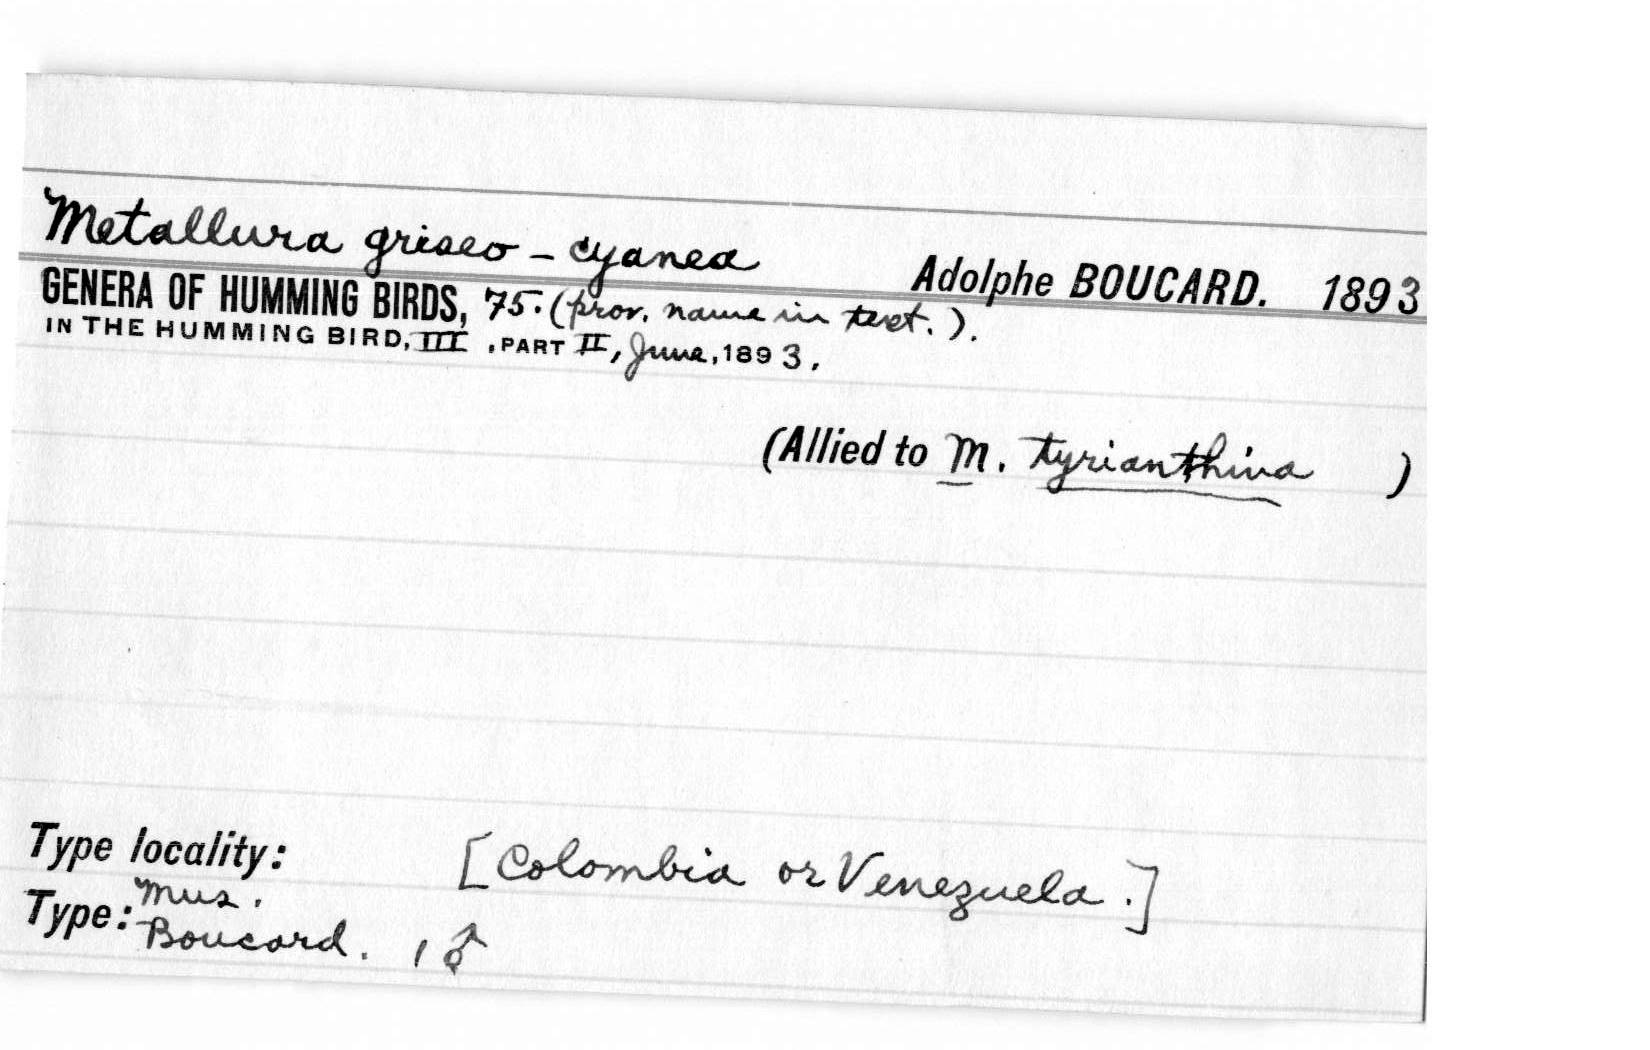 Metallura griseo-cyanea Adolphe BOUCARD. 1893
GENERA OF HUMMING BIRDS, 75. (prov. name in text.).
IN THE HUMMING BIRD, III, PART II, June, 1893.
(Allied to M. tyrianthina )
Type locality: [Colombia or Venezuela.]
Type: Mus. Boucard. 1 ♂